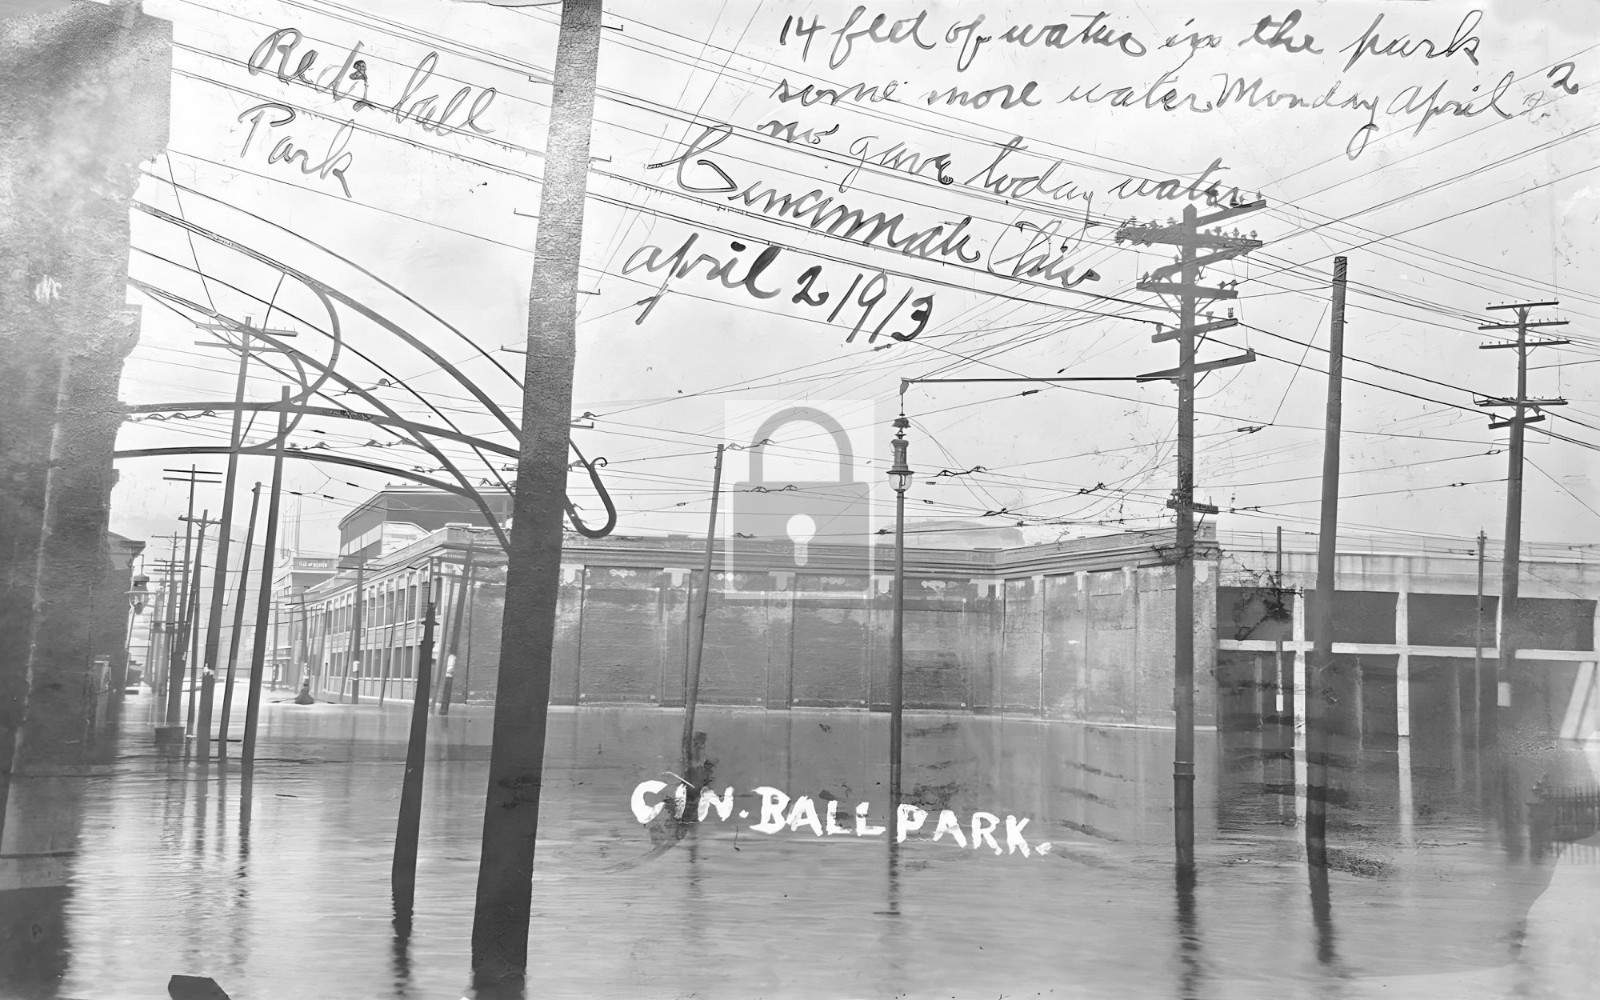 Reds ball
Park
14 feet of water in the park
some more water Monday April 2
no game today water
Cincinnati Ohio
april 2 1913
CIN. BALL PARK.